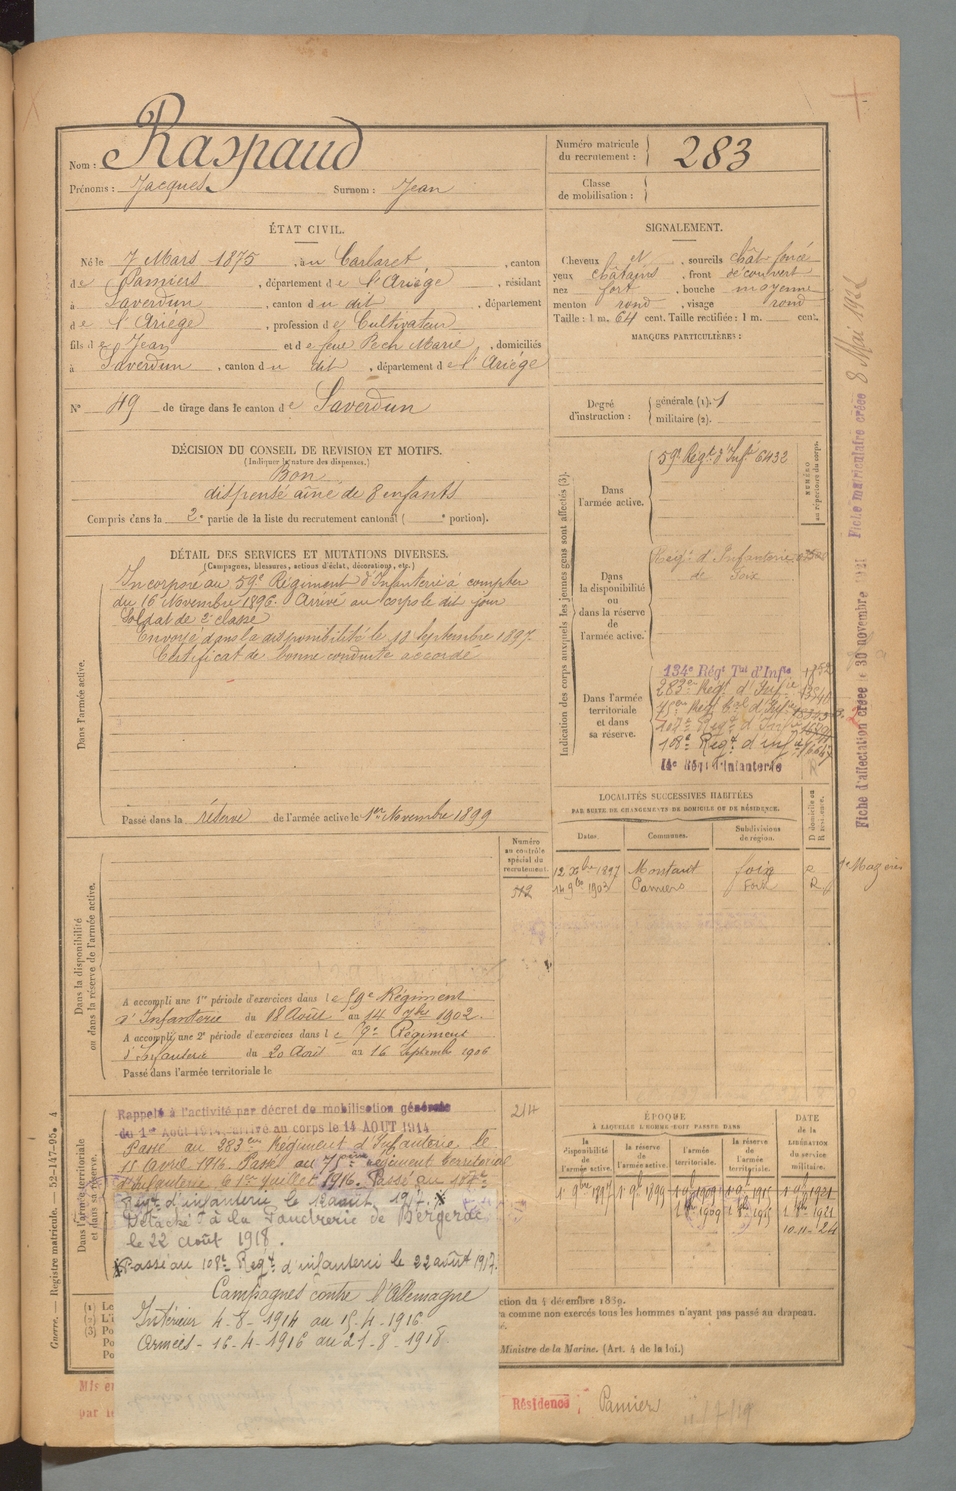 Nom : Raspaud
Prénoms : Jacques Surnom : Jean
Numéro matricule
du recrutement : 283
Classe
de mobilisation :
ÉTAT CIVIL.
Né le 7 Mars 1875, à Carlaret, canton
de Pamiers, département de l'Ariège, résidant
à Saverdun, canton du dit, département
de l'Ariège, profession de Cultivateur
fils de Jean et de feue Pech Marie, domiciliés
à Saverdun, canton du dit, département de l'Ariège
N° 49 de tirage dans le canton de Saverdun
SIGNALEMENT.
Cheveux et, sourcils chât foncé
yeux châtains, front découvert
nez fort, bouche moyenne
menton rond, visage rond
Taille : 1 m. 64 cent. Taille rectifiée : 1 m. cent.
MARQUES PARTICULIÈRES :
Degré
d'instruction :
générale (1). 1
militaire (2).
DÉCISION DU CONSEIL DE REVISION ET MOTIFS.
(Indiquer la nature des dispenses.)
Bon
dispensé aîné de 8 enfants
Compris dans la 2e partie de la liste du recrutement cantonal ( e portion).
DÉTAIL DES SERVICES ET MUTATIONS DIVERSES.
(Campagnes, blessures, actions d'éclat, décorations, etc.)
Dans l'armée active.
Incorporé au 59e Régiment d'Infanterie à compter
du 16 Novembre 1896. Arrivé au corps le dit jour
Soldat de 2e classe
Envoyé dans la disponibilité le 18 Septembre 1897
Certificat de bonne conduite accordé
Passé dans la réserve de l'armée active le 1er Novembre 1899
Indication des corps auxquels les jeunes gens sont affectés (3).
NUMÉRO
au répertoire du corps.
Dans
l'armée active.
59e Régt d'Infie 6432
Dans
la disponibilité
ou
dans la réserve
de
l'armée active.
Régt d'Infanterie
de Foix
Dans l'armée
territoriale
et dans
sa réserve.
134e Régt Tal d'Infie
283e Régt d'Infie
108e Régt d'infie
14e Régt d'Infanterie
R
Fiche d'affectation créée le 30 novembre
Fiche matriculaire créée 8 Mai 192
LOCALITÉS SUCCESSIVES HABITÉES
PAR SUITE DE CHANGEMENTS DE DOMICILE OU DE RÉSIDENCE.
Dates. Communes. Subdivisions
de région. D domicile ou
R résidence.
12 Xbre 1897 Montaut Foix R
14 9bre 1903 Pamiers Foix R
Numéro
au contrôle
spécial du
recrutement.
512
Dans la disponibilité
ou dans la réserve de l'armée active.
A accompli une 1re période d'exercices dans le 59e Régiment
d'Infanterie du 18 Août au 14 7bre 1902.
A accompli une 2e période d'exercices dans le 7e Régiment
d'Infanterie du 20 Août au 16 Septembre 1906
Passé dans l'armée territoriale le
Dans l'armée territoriale
et dans sa réserve.
214
Rappelé à l'activité par décret de mobilisation générale
du 1er Août 1914, arrivé au corps le 14 AOUT 1914
Passé au 283ème Régiment d'Infanterie, le
15 avril 1916. Passé au 75ème régiment territorial
d'Infanterie le 1er juillet 1916. Passé au
Regt d'infanterie le août 1917. x
Détaché à la Poudrerie de Bergerac
le 22 août 1918.
x Passé au 108e Regt d'infanterie le 22 août 1917.
Campagnes contre l'Allemagne
Intérieur 4-8-1914 au 15-4-1916
Armées - 16-4-1916 au 21-8-1918.
ÉPOQUE
À LAQUELLE L'HOMME DOIT PASSER DANS
la
disponibilité
de
l'armée active.
la
réserve
de
l'armée active.
l'armée
territoriale.
la
réserve
de
l'armée
territoriale.
DATE
de la
LIBÉRATION
du
service
militaire.
1er 9bre 1897 1er 9bre 1899 1er 9bre 1909 1er 9bre 1915 1er 9bre 1921
10.11.24
ction du 4 décembre 1889.
ra comme non exercés tous les hommes n'ayant pas passé au drapeau.
Ministre de la Marine. (Art. 4 de la loi.)
Guerre. — Registre matricule. — 52-147-95. 4
Mis en
par le
Résidence : Pamiers
11/7/19